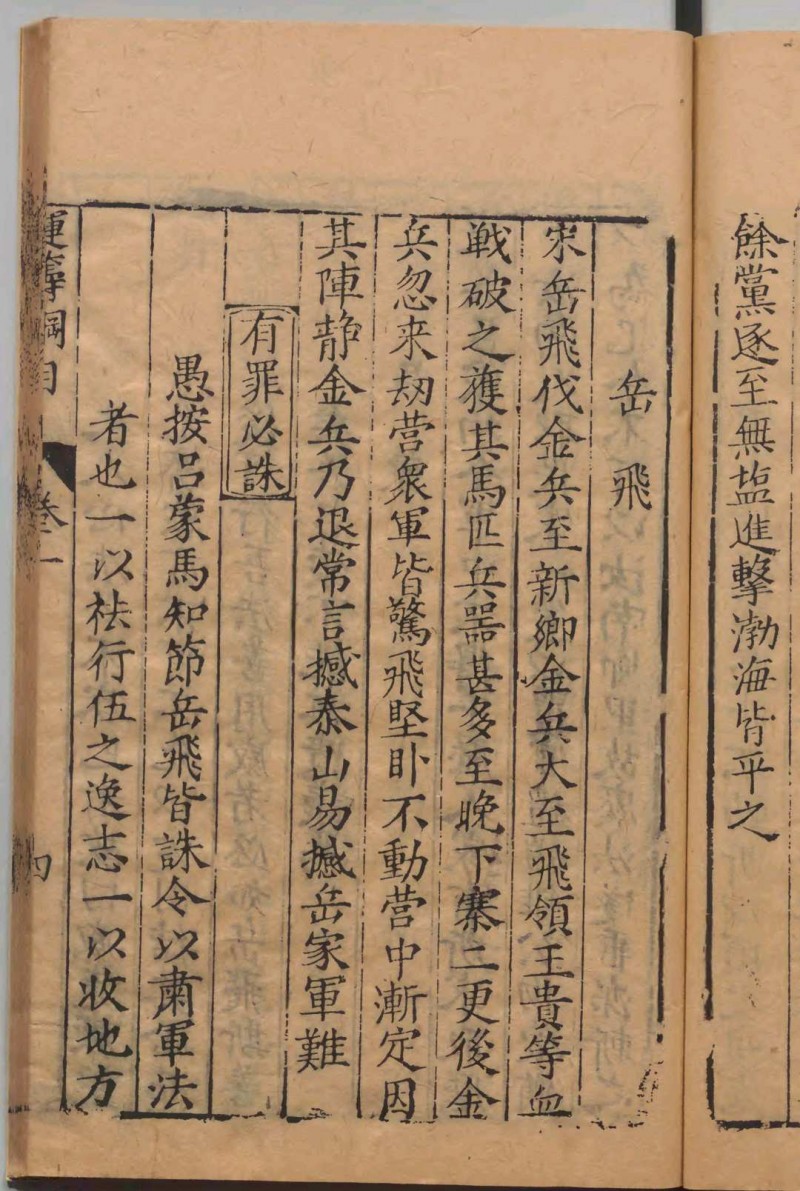 餘黨逐至無塩進擊渤海皆平之
岳飛
宋岳飛伐金兵至新鄉金兵大至飛領王貴等血
戦破之獲其馬匹兵噐甚多至晚下寨二更後金
兵忽来刼营衆軍皆驚飛堅卧不動营中漸定因
其陣静金兵乃退常言撼泰山易撼岳家軍難
有罪必誅
愚按吕蒙馬知節岳飛皆誅令以肅軍法
者也一以袪行伍之逸志一以收地方
運籌綱目
卷一
四